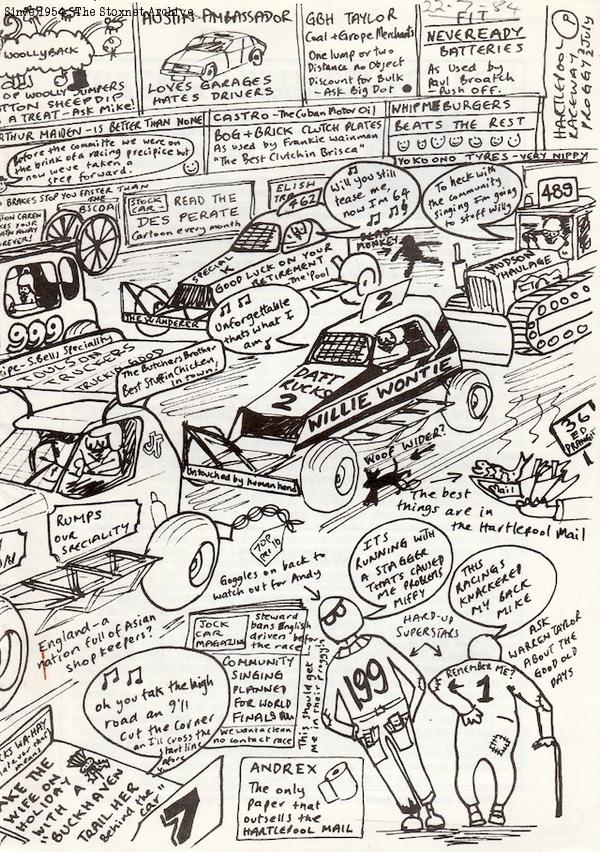 Since 1954 - The Stoxnet Archive
22-7-84
WOOLLYBACK
OF WOOLLY JUMPERS
TTON SHEEP DIP
A TREAT - ASK Mike!
AUSTIN AMBASSADOR
LOVES GARAGES
HATES DRIVERS
GBH TAYLOR
Coal + Grope Merchants
One lump or two
Distance no Object
Discount for Bulk
- Ask Big Dot
FIT
NEVEREADY
BATTERIES
As Used by
Paul Broatch
Push Off.
HARTLEPOOL
RACEWAY
PROGGY 22 JULY
P
ARTHUR MAIDEN - IS BETTER THAN NONE
Before the committe we were on
the brink of a racing precipice but
now we've taken a
step forward.
CASTRO - The Cuban Motor Oil
BOG + BRICK CLUTCH PLATES
As used by Frankie Wainman
"The Best Clutchin Brisca"
WHIPMEBURGERS
BEATS THE REST
YOKO ONO TYRES - VERY NIPPY
BRAKES STOP YOU FASTER THAN
THE BSCDA
STOCK
CAR
READ THE
DES PERATE
Cartoon every month
ELISH
462
Will you still
tease me,
now I'm 64
To heck with
the community
singing I'm going
to stuff Willy
489
HUDSON
HAULAGE
DEAD
MONKEY
SPECIAL
K
GOOD LUCK ON YOUR
RETIREMENT
- The 'Pool
THE WANDERER
Unforgettable
thats what I
am
999
S. Bells Speciality
TOULSON
TRUCKERS
TRUCKIN GOOD
The Butchers Brother
Best Stuffin Chicken,
in town!
JT
2
DAFT
RUCKS
2
WILLIE WONTIE
Untouched by human hand
WOOF WIDER?
36
ED
PRANGIT
1
Mail
The best
things are in
the Hartlepool Mail
RUMPS
OUR
SPECIALITY
TOP
Goggles on back to
watch out for Andy
ITS
RUNNING WITH
A STAGGER
THATS CAUSED
ME PROBLEMS
MIFFY
THIS
RACING'S
KNACKERED
MY BACK
MIKE
HARD-UP
SUPERSTARS
ASK
WARREN TAYLOR
ABOUT THE
GOOD OLD
DAYS
199
REMEMBER ME?
1
This should get
me in their proggy's
England - a
nation full of Asian
shop keepers?
JOCK
CAR
MAGAZINE
steward
bans English
driven before
the race
COMMUNITY
SINGING
PLANNED
FOR WORLD
FINALS
We want a clean
no contact race
oh you tak the high
road an I'll
Cut the Corner
an I'll cross the
start line
before
TAKE THE
WIFE ON
HOLIDAY
WITH A
"BUCKHAVEN
TRAIL HER
Behind the
car"
7
ANDREX
The only
paper that
outsells the
HARTLEPOOL MAIL